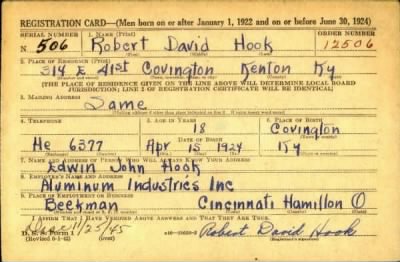 REGISTRATION CARD—(Men born on or after January 1, 1922 and on or before June 30, 1924)
SERIAL NUMBER 1. NAME (Print) ORDER NUMBER
N 506 Robert David Hook 12506
2. PLACE OF RESIDENCE (Print)
314 E 41st Covington Kenton Ky
[THE PLACE OF RESIDENCE GIVEN ON THE LINE ABOVE WILL DETERMINE LOCAL BOARD
JURISDICTION; LINE 2 OF REGISTRATION CERTIFICATE WILL BE IDENTICAL]
3. MAILING ADDRESS
Same
4. TELEPHONE 5. AGE IN YEARS 6. PLACE OF BIRTH
18 Covington
He 6377 Apr 15 1924 Ky
7. NAME AND ADDRESS OF PERSON WHO WILL ALWAYS KNOW YOUR ADDRESS
Edwin John Hook
8. EMPLOYER'S NAME AND ADDRESS
Aluminum Industries Inc
9. PLACE OF EMPLOYMENT OR BUSINESS
Beekman Cincinnati Hamilton O
I AFFIRM THAT I HAVE VERIFIED ABOVE ANSWERS AND THAT THEY ARE TRUE.
D. S. S. Form 1 11/25/45
(Revised 6-1-42) Robert David Hook